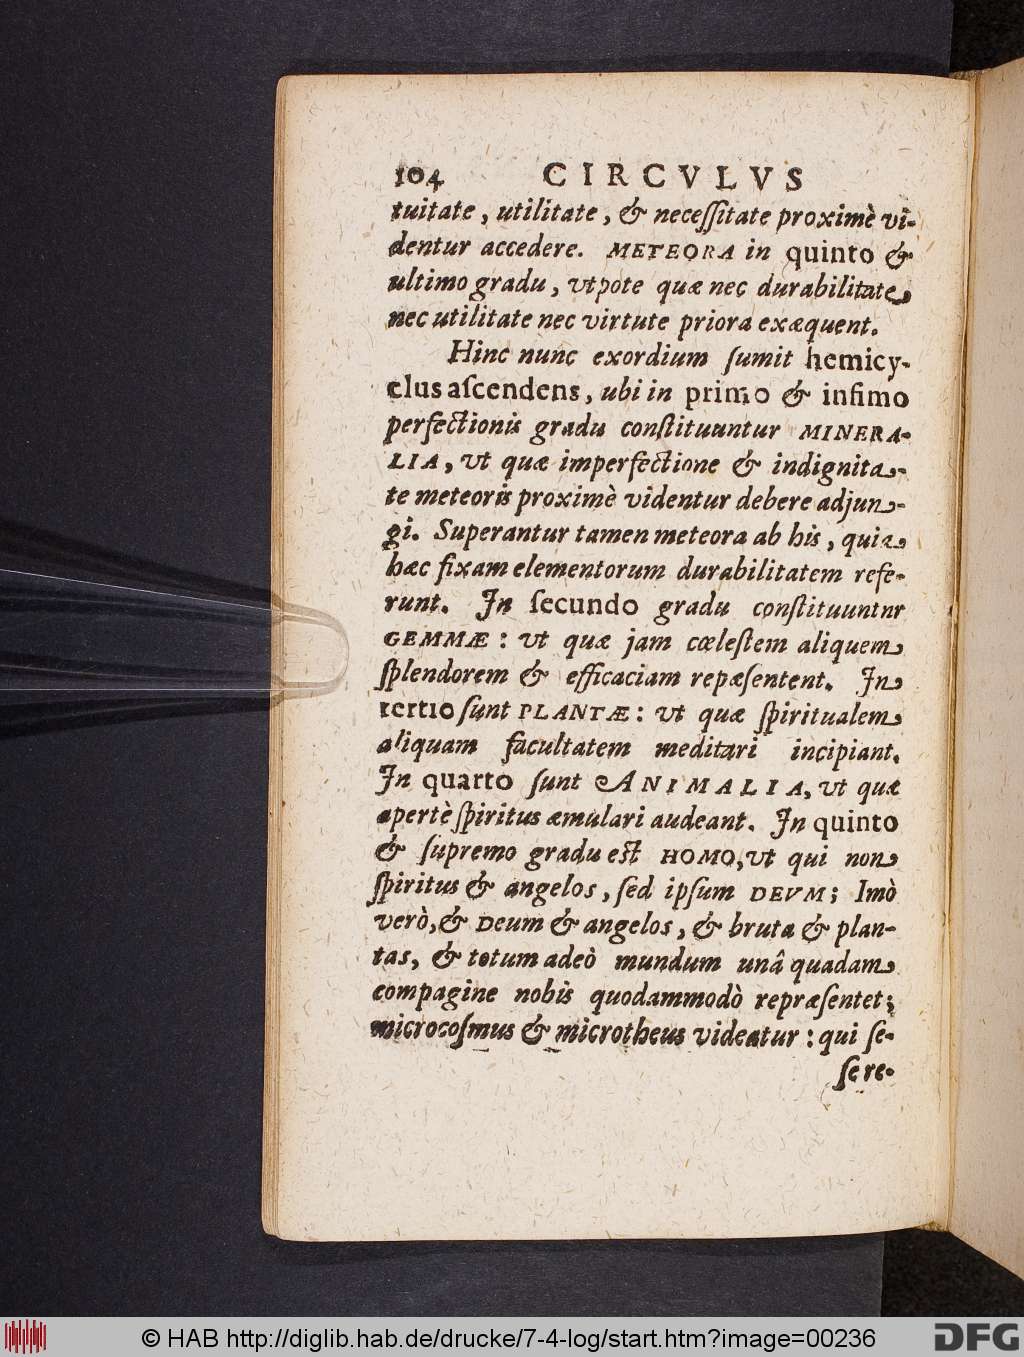 104 CIRCVLVS
tuitate, utilitate, & neceſſitate proximè vi-
dentur accedere. METEORA in quinto &
ultimo gradu, utpote quæ nec durabilitate,
nec utilitate nec virtute priora exæquent.
Hinc nunc exordium ſumit hemicy-
clus aſcendens, ubi in primo & infimo
perfectionis gradu conſtituuntur MINERA-
LIA, ut quæ imperfectione & indignita-
te meteoris proximè videntur debere adjun-
gi. Superantur tamen meteora ab his, quia
hæc fixam elementorum durabilitatem refe-
runt. In ſecundo gradu conſtituuntnr
GEMMÆ: ut quæ jam cœleſtem aliquem
ſplendorem & efficaciam repæſentent. In
tertio ſunt PLANTÆ: ut quæ ſpiritualem
aliquam facultatem meditari incipiant.
In quarto ſunt ANIMALIA, ut quæ
apertè ſpiritus æmulari audeant. In quinto
& ſupremo gradu est HOMO, ut qui non
ſpiritus & angelos, ſed ipſum DEVM; Imò
verò, & Deum & angelos, & bruta & plan-
tas, & totum adeò mundum unâ quadam
compagine nobis quodammodò repræſentet;
microcoſmus & microtheus videatur: qui ſe-
ſe re-
© HAB http://diglib.hab.de/drucke/7-4-log/start.htm?image=00236
DFG